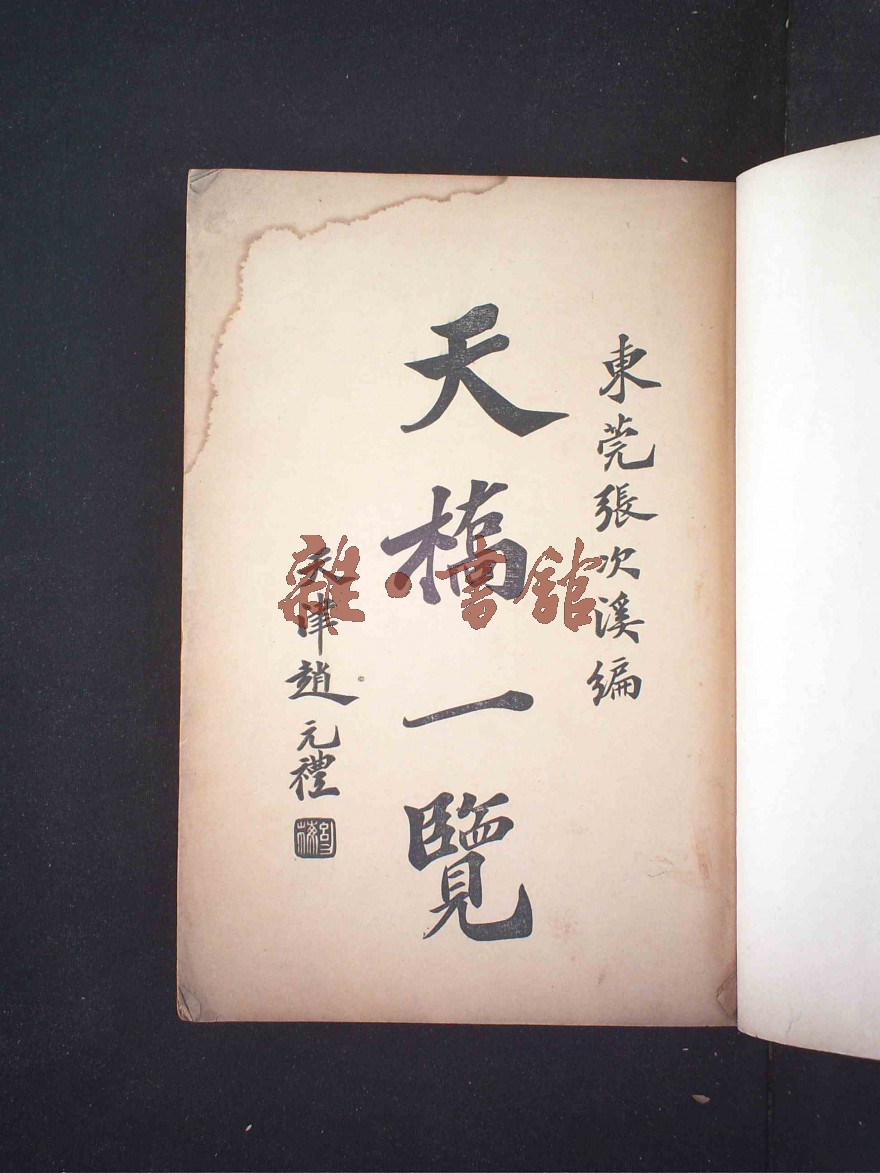 東莞張次溪編
天橋一覽
天津趙元禮
雜·書館